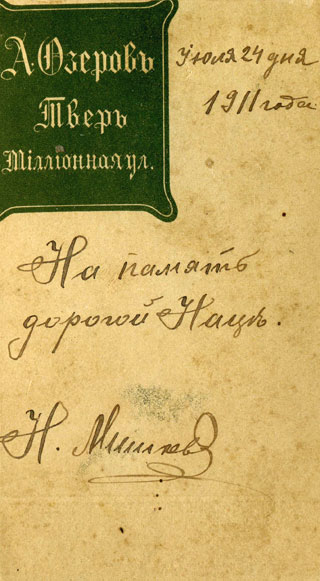 А. Озеровъ
Тверь
Милліонная ул.
Іюля 24 дня
1911 года
На память
дорогой Нацѣ.
Н.